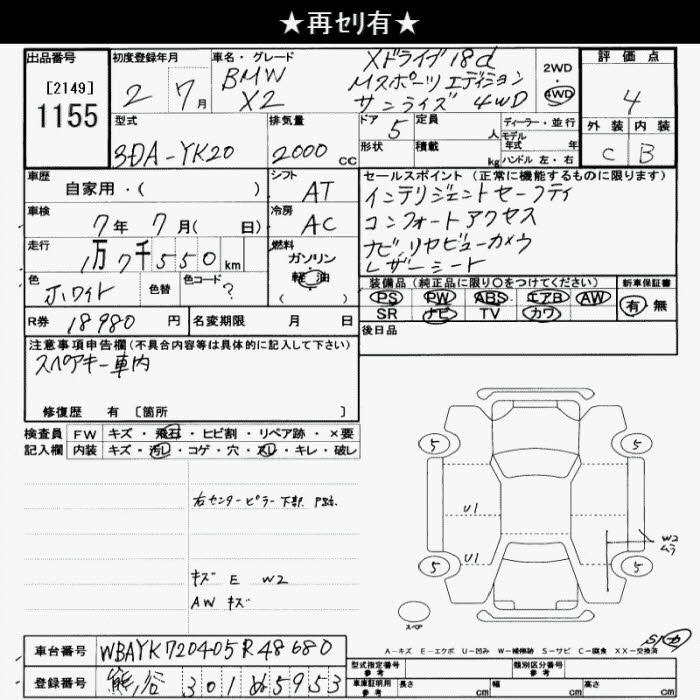 ★再ｾﾘ有★
出品番号
[2149]
1155
初度登録年月
2 7月
車名・グレード
BMW
X2
Xドライブ18d
Mスポーツエディション
サンライズ 4WD
2WD
・
4WD
評価点
4
外装 内装
C B
型式
3DA-YK20
排気量
2000 CC
ドア
5
定員
人
形状
積載
kg
ディーラー・並行
モデル
年式 年
ハンドル 左・右
車歴
自家用・( )
シフト
AT
車検
7年 7月( 日)
冷房
AC
走行
1万7千550km
燃料
ガソリン
軽油
( )
色
ホワイト
色替
色コード
?
R券 18980 円
名変期限 月 日
セールスポイント (正常に機能するものに限ります)
インテリジェントセーフティ
コンフォートアクセス
ナビ、リヤビューカメラ
レザーシート
装備品 (純正品に限り〇をつけてください)
PS PW ABS エアB AW
SR ナビ TV カワ
新車保証書
有・無
後日品
注意事項申告欄 (不具合内容等は具体的に記入して下さい)
スペアキー車内
修復歴 有 [箇所 ]
検査員
記入欄
FW キズ・飛石・ヒビ割・リペア跡・×要
内装 キズ・汚レ・コゲ・穴・スレ・キレ・破レ
右センターピラー下部
キズ E W2
AW キズ
5 5
U1
U1
W2
ムラ
5 5
スペア
A-キズ E-エクボ U-凹み W-補修跡 S-サビ C-腐食 XX-交換済
車台番号 WBAYK720405R48680
登録番号 熊谷 301 ぬ 5953
型式指定番号
参考
類別区分番号
参考
車庫証明用
参考
長さ cm
幅 cm
高さ cm